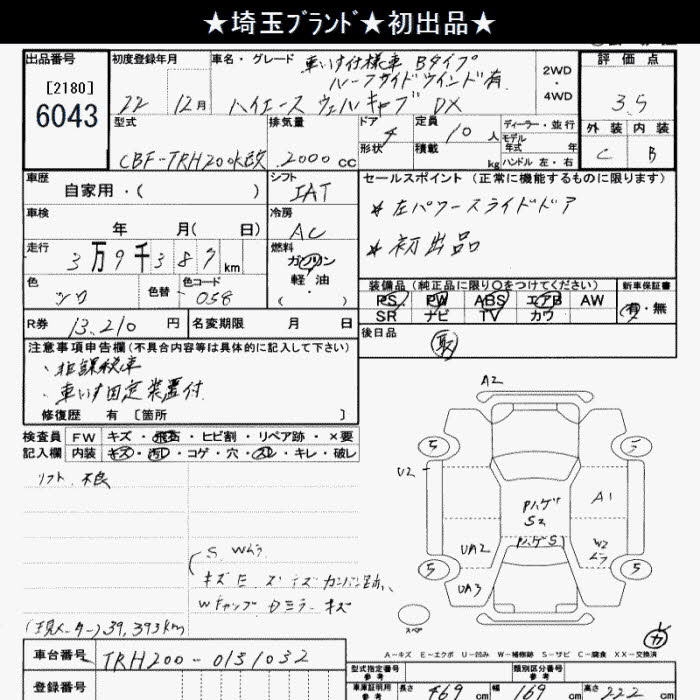 ★埼玉ﾌﾞﾗﾝﾄﾞ★初出品★
出品番号
[2180]
6043
初度登録年月
22 12月
車名・グレード
車いす仕様車 Bタイプ
ルーフサイドウインド有
ハイエース ウェルキャブ DX
2WD
・
4WD
評価点
3.5
外装 内装
C B
型式
CBF-TRH200K改
排気量
2000 cc
ドア 4
形状
定員 10 人
積載 kg
ディーラー・並行
モデル
年式 年
ハンドル 左・右
車歴
自家用・( )
シフト
IAT
車検
年 月( 日)
冷房
AC
走行
3万9千387km
燃料
ガソリン
軽油
( )
色
シロ
色替
色コード
058
R券 13,210 円
名変期限 月 日
セールスポイント(正常に機能するものに限ります)
*左パワースライドドア
*初出品
装備品(純正品に限り○をつけてください)
PS PW ABS エアB AW
SR ナビ TV カワ
新車保証書
有・無
後日品
取
注意事項申告欄(不具合内容等は具体的に記入して下さい)
・非課税車
・車いす固定装置付
修復歴 有 [箇所 ]
検査員
記入欄
FW キズ・飛石・ヒビ割・リペア跡・×要
内装 キズ・汚レ・コゲ・穴・スレ・キレ・破レ
リフト 不良
S Wムラ
(現メーター)39,393km
A2
5 5
U2
PハゲS2
PハゲS
A1
UA2
W2
ムラ
5 5
UA3
スペア
カ
A-キズ E-エクボ U-凹み W-補修跡 S-サビ C-腐食 XX-交換済
車台番号 TRH200-0131032
登録番号
型式指定番号
参考
類別区分番号
参考
車庫証明用
参考
長さ 469 cm 幅 169 cm 高さ 222 cm